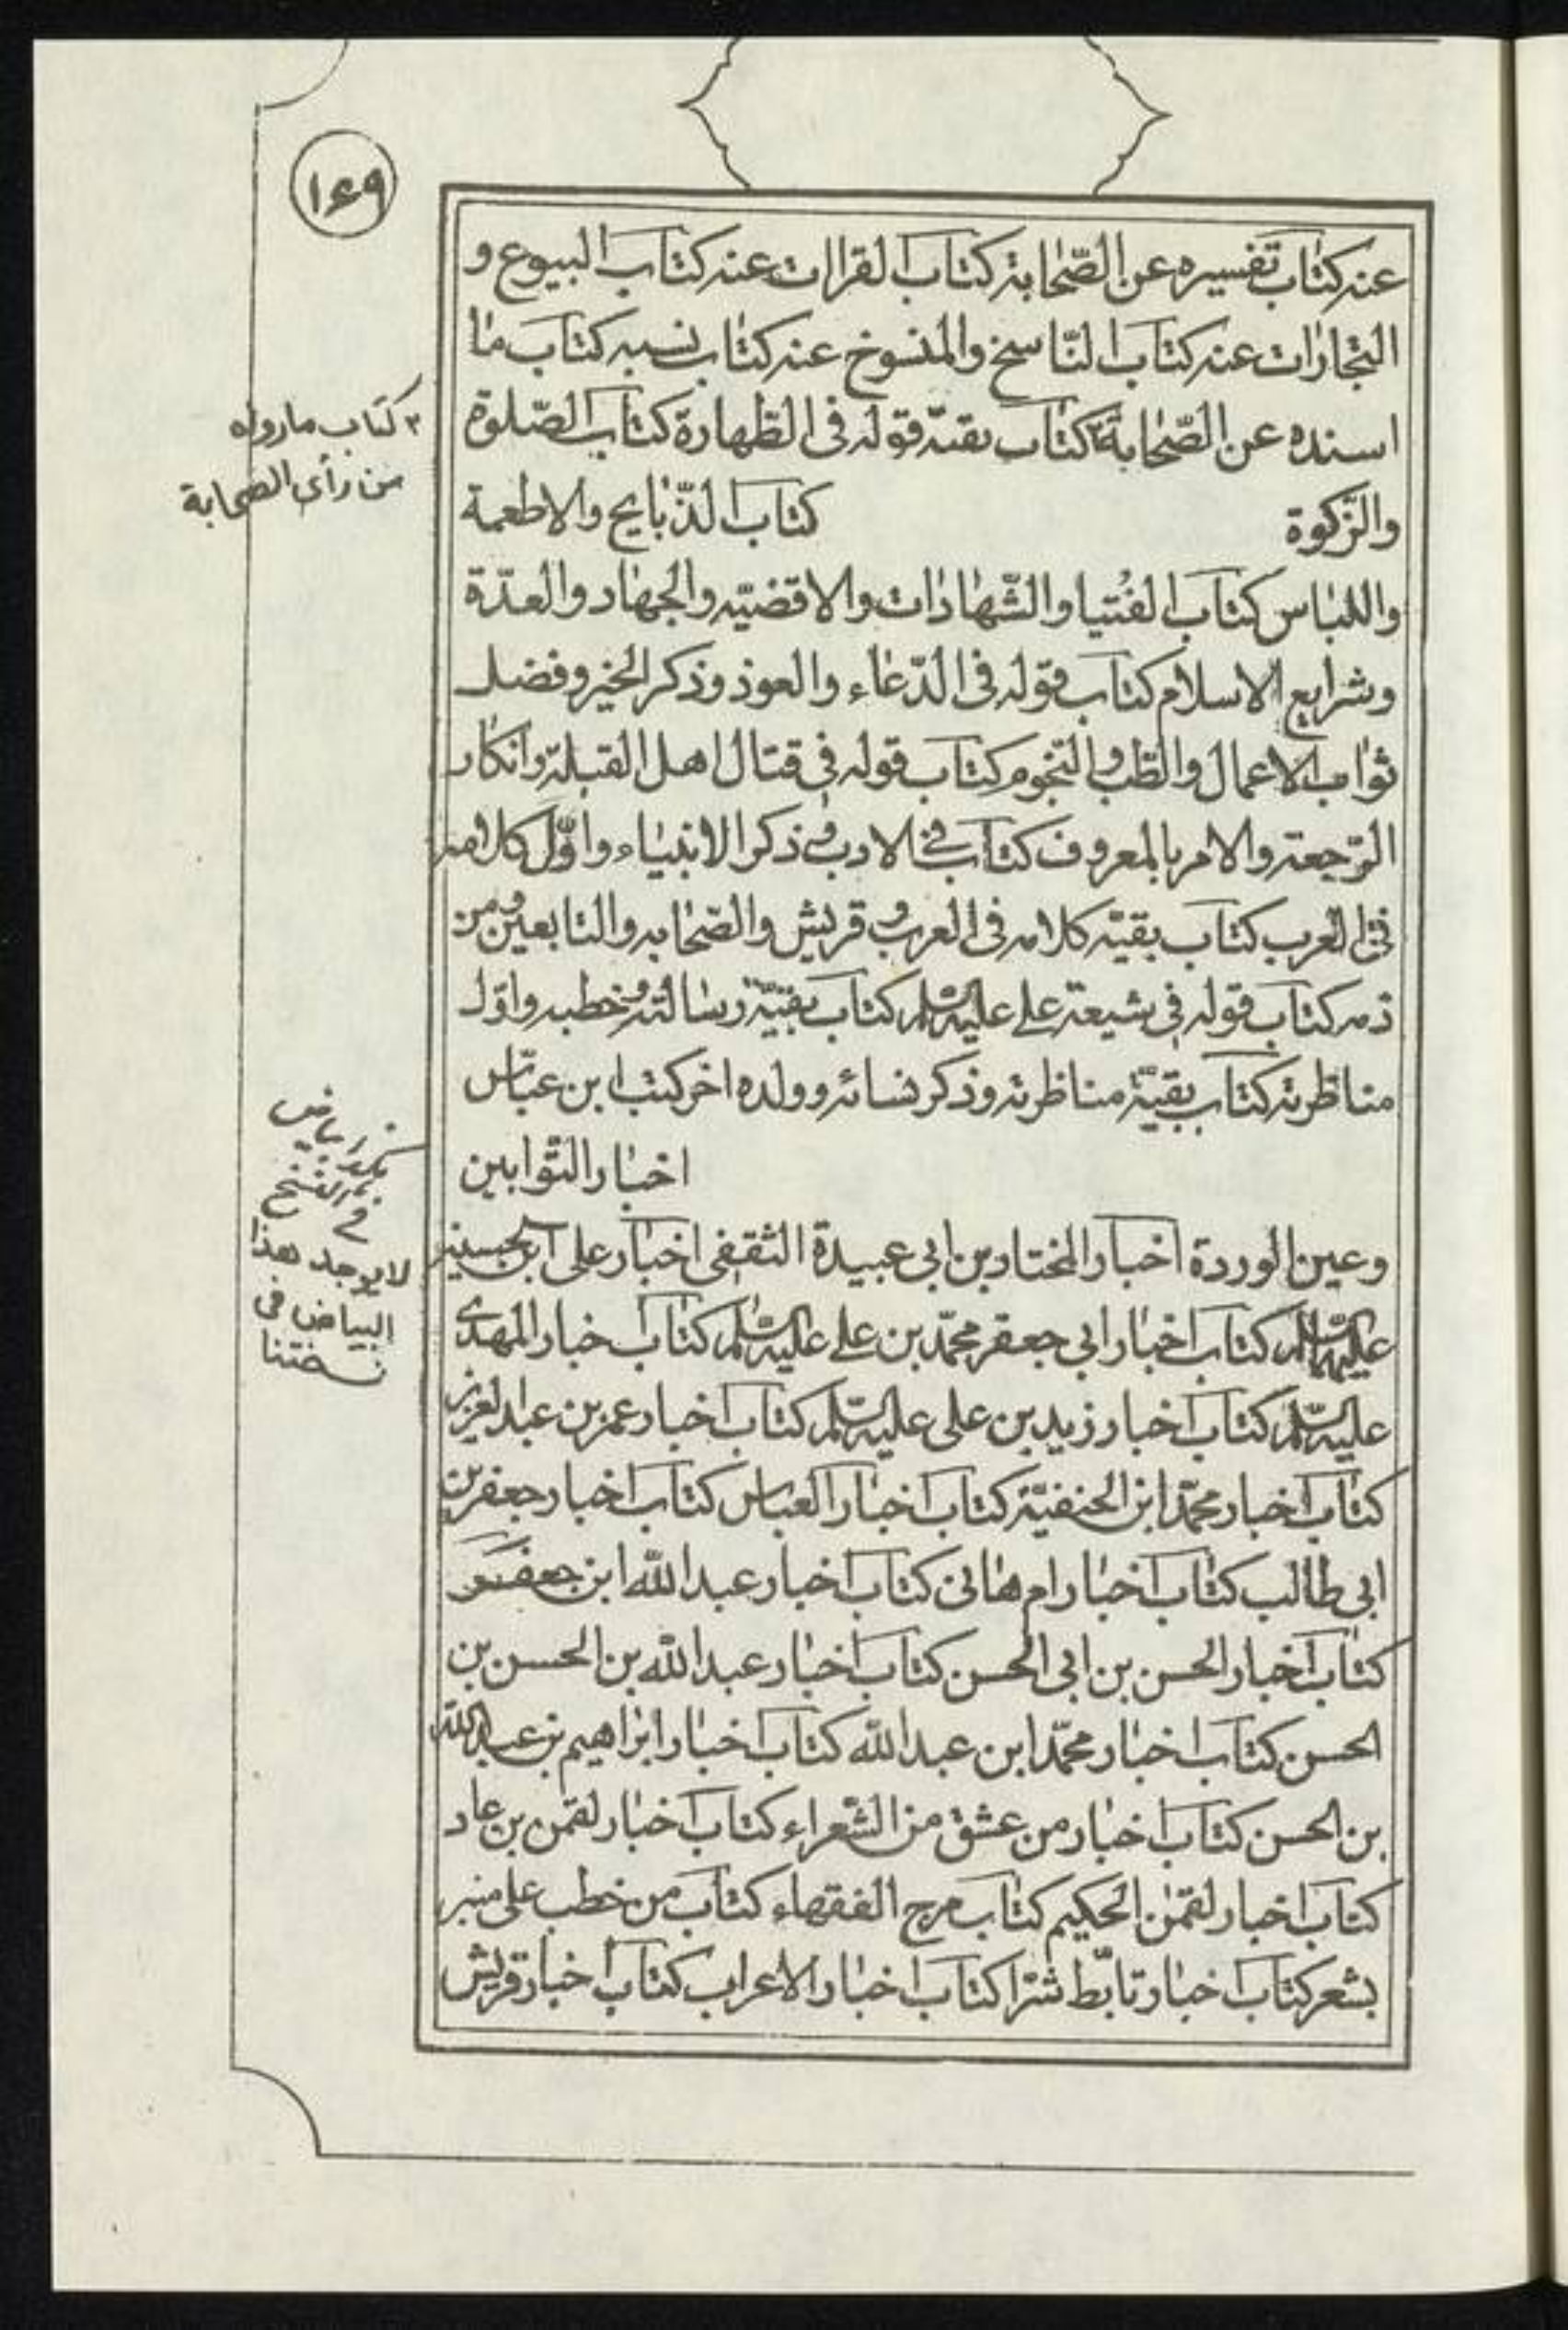 ١٦٩
عنه كتاب تفسيره عن الصّحابة كتاب القراات عنه كتاب البيوع و
التجارات عنه كتاب النّاسخ والمنسوخ عنه كتاب نسبه كتاب ما
اسنده عن الصّحابة كتاب بقيّة قوله فى الطّهارة كتاب الصّلوة
والزّكوة كتاب الذّبايح والاطعمة
واللباس كتاب الفُتيا والشّهادات والاقضيّه والجهاد والعدّة
وشرايع الاسلام كتاب قوله فى الدّعاء والعوذ وذكر الخير وفضل
ثواب الاعمال والطّب والنّجوم كتاب قوله فى قتال اهل القبلة وانكار
الرّجعة والامر بالمعروف كتاب فى الادب وذكر الانبياء واوّل كلامه
فى العرب كتاب بقيّه كلامه فى العرب و قريش والصّحابه والتابعين ومن
ذمه كتاب قوله فى شيعة على عليه السّلم كتاب بقيّة رسالته وخطبه واوّل
مناظرته كتاب بقيّة مناظرته وذكر نسائه وولده اخر كتب ابن عبّاس
اخبار التوابين
وعين الوردة اخبار المختار بن ابى عبيدة الثقفى اخبار على ابن الحسين
عليهما السّلم كتاب اخبار ابى جعفر محمّد بن على عليه السّلم كتاب اخبار المهدى
عليه السّلم كتاب اخبار زيد بن على عليه السّلم كتاب اخبار عمر بن عبد العزيز
كتاب اخبار محمّد ابن الحنفيّة كتاب اخبار العباس كتاب اخبار جعفر بن
ابى طالب كتاب اخبار ام هانى كتاب اخبار عبد الله ابن جعفر
كتاب اخبار الحسن بن ابى الحسن كتاب اخبار عبد الله بن الحسن بن
الحسن كتاب اخبار محمّد ابن عبد الله كتاب اخبار ابراهيم بن عبد الله
بن الحسن كتاب اخبار من عشق من الشّعراء كتاب اخبار لقمن بن عاد
كتاب اخبار لقمن الحكيم كتاب مرج الفقهاء كتاب من خطب على منبر
بشعر كتاب اخبار تابّط شرّا كتاب اخبار الاعراب كتاب اخبار قريش
٢ كتاب ما رواه
من رأى الصحابة
لا يوجد هذا
البياض فى
نسختنا